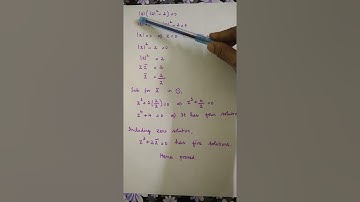 |z| (|z|² - 2) = 0
|z|² - 2 = 0
|z| = 0 ⇒ z = 0
|z|² - 2 = 0
|z|² = 2
z z̄ = 2
z̄ = 2/z
Sub for z̄ in ①,
z³ + 2(2/z) = 0 ⇒ z³ + 4/z = 0
z⁴ + 4 = 0 ⇒ It has four solutions
Including zero solution,
z³ + 2z̄ = 0 has five solutions.
Hence proved